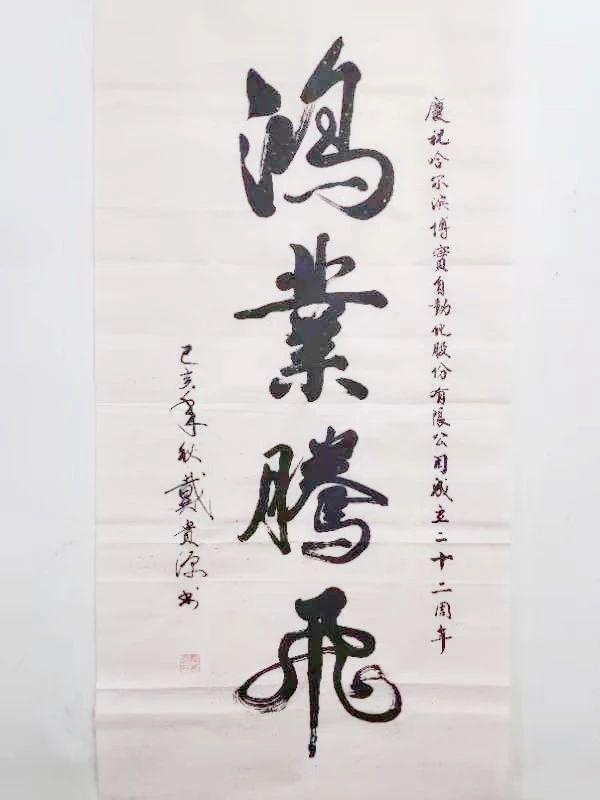 慶祝哈尔濱博實自動化股份有限公司成立二十二周年
鴻業騰飛
己亥年秋戴貴源书